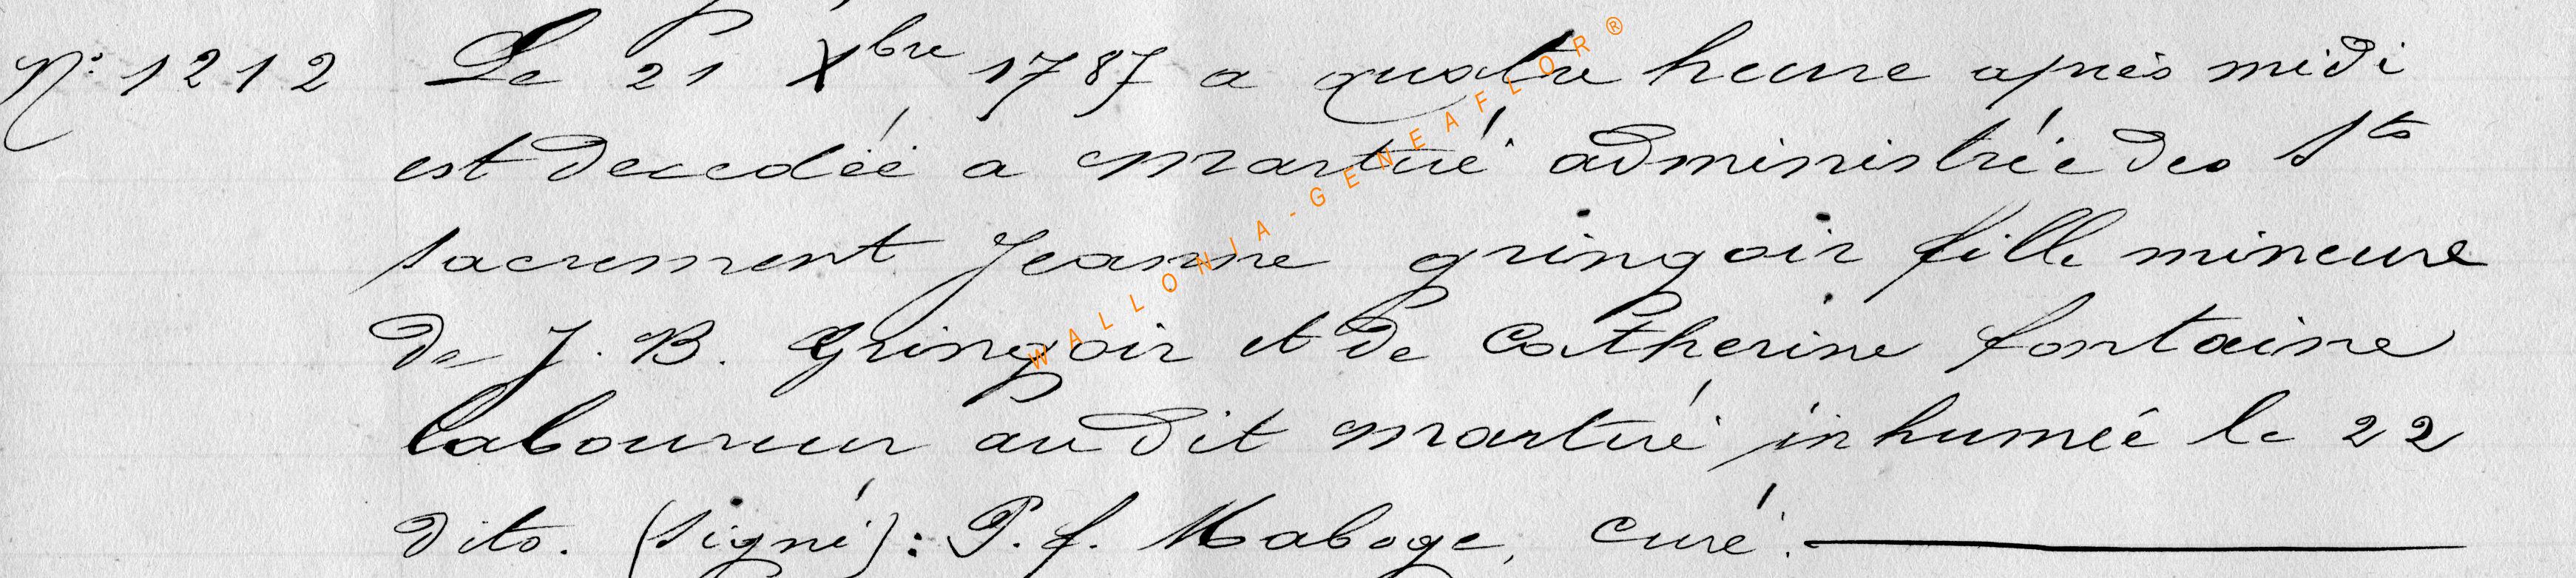 N° 1212 Le 21 Xbre 1787 a quatre heure après midi
est decedéé a martué administrée des Sts
sacrement Jeanne gringoir fille mineure
de J. B. Gringoir et de Catherine fontaine
laboureur audit martué inhuméé le 22
dito. (signé): P. f. Maboge, Curé.
WALLONIA-GENEAFLOR®